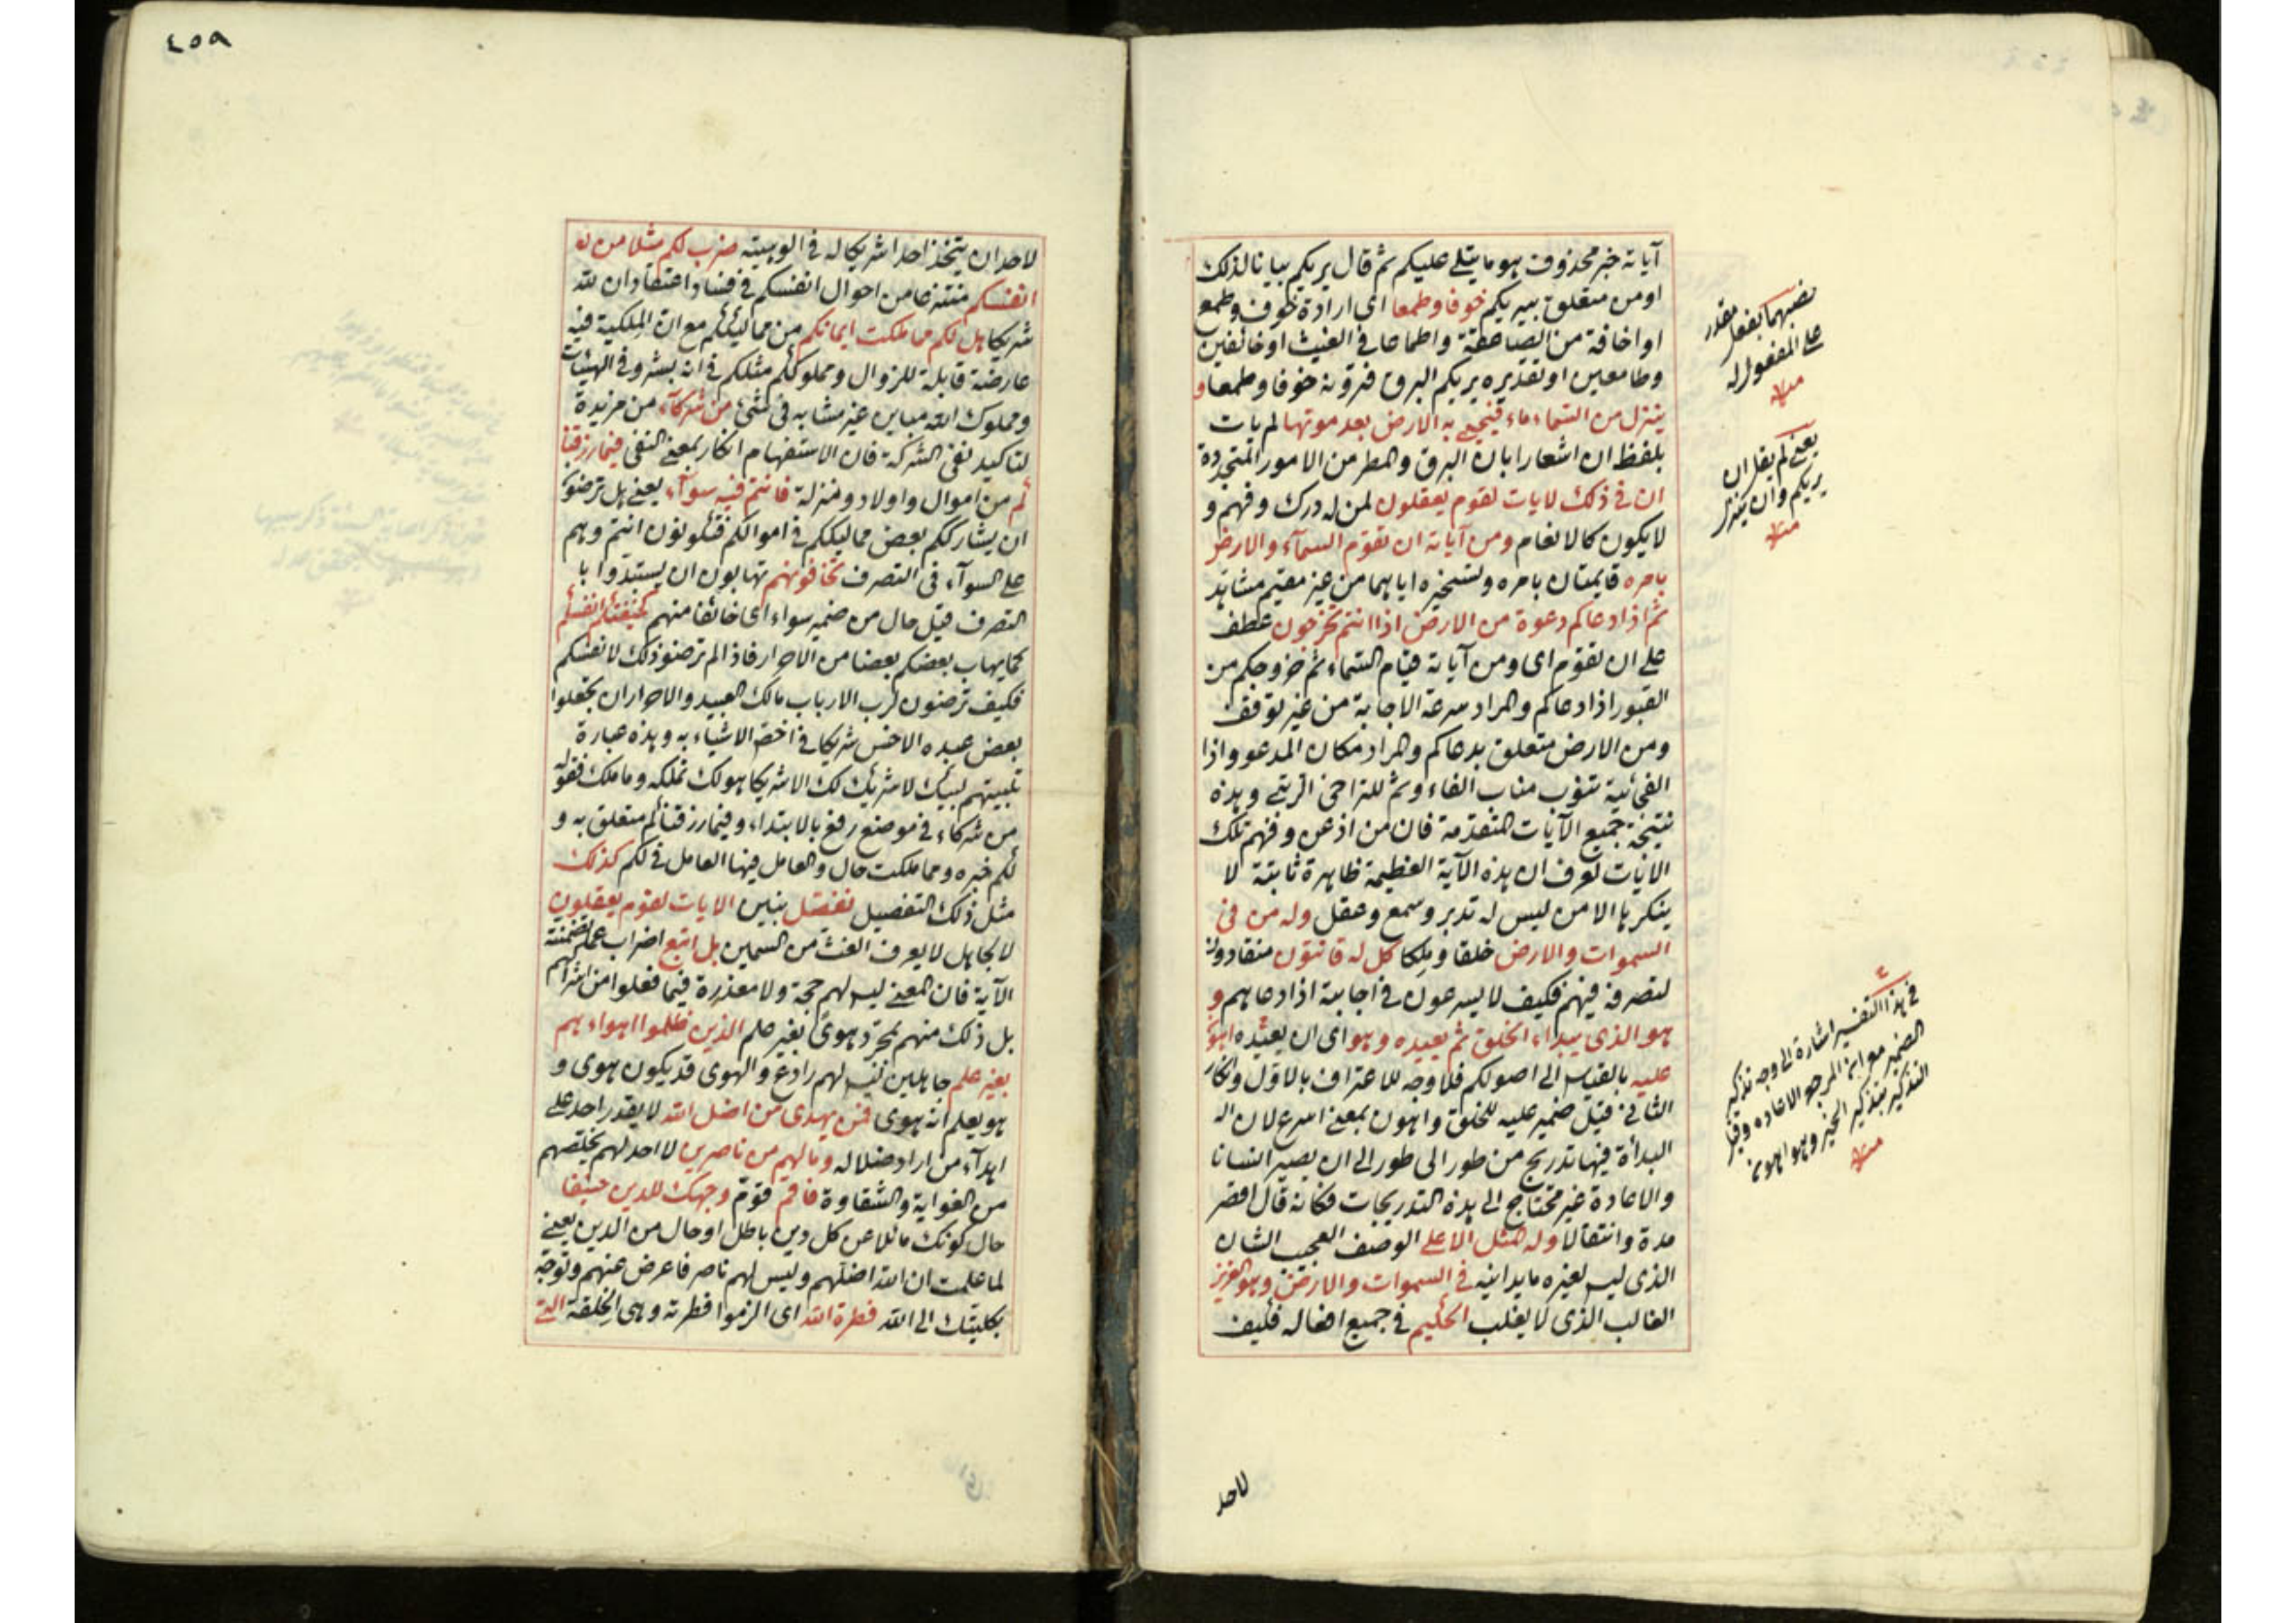 آياته خبر محذوف هو ما يتلى عليكم ثم قال يريكم بيانا لذلك
او من متعلق بيريكم خوفا وطمعا اى ارادة خوف وطمع
او اخافة من الصاعقة واطماعا فى الغيث او خائفين
وطامعين او تقديره يريكم البرق فترونه خوفا وطمعا و
ينزل من السماء ماء فيحيى به الارض بعد موتها لم يات
بلفظ ان اشعارا بان البرق والمطر من الامور المتجددة
ان فى ذلك لايات لقوم يعقلون لمن له درك وفهم و
لا يكون كالانعام ومن آياته ان تقوم السمآء والارض
بامره قايمتان بامره وتسخيره اياهما من غير مقيم مشاهد
ثم اذا دعاكم دعوة من الارض اذا انتم تخرجون عطف
على ان تقوم اى ومن آياته قيام السماء ثم خروجكم من
القبور اذا دعاكم والمراد سرعة الاجابة من غير توقف
ومن الارض متعلق بدعاكم والمراد مكان المدعو واذا
الفجائية تنوب مناب الفاء وثم للتراخى الرتبى وهذه
نتيجة جميع الآيات المتقدمة فان من اذعن وفهم تلك
الايات تعرف ان هذه الآية العظيمة ظاهرة ثابتة لا
ينكرها الا من ليس له تدبر وسمع وعقل وله من فى
السموات والارض خلقا وملكا كل له قانتون منقادون
لتصرفه فيهم فكيف لا يسرعون فى اجابته اذا دعاهم و
هو الذى يبداء الخلق ثم يعيده وهو اى ان يعيده اهون
عليه بالقياس الى اصولكم فلا وجه للاعتراف بالاول وانكار
الثانى قيل ضمير عليه للخلق واهون بمعنى اسرع لان اله
البدأة فيها تدريج من طور الى طور الى ان يصير انسانا
والاعادة غير محتاج الى هذه التدريجات فكانه قال اقصر
مدة وانتقالا وله المثل الاعلى الوصف العجيب الشان
الذى ليس لغيره ما يدانيه فى السموات والارض وهو العزيز
الغالب الذى لا يغلب الحكيم فى جميع افعاله فكيف
لاحد
نصبهما بفعل مقدر
على المفعول له
منه
يعنى لم يقل ان
يريكم وان ينزل
منه
فى هذا التفسير اشارة الى وجه تذكير
الضمير مع ان المرجع الاعاده وقيل
التذكير بتذكير الخبر وهو اهون
منه
٤٥٩
لاحد ان يتخذ احدا شريكا له فى الوهيته ضرب لكم مثلا من
انفسكم منتزعا من احوال انفسكم فى فساد اعتقاد ان لله
شريكا هل لكم مما ملكت ايمانكم من مماليككم مع ان الملكية فيه
عارضة قابلة للزوال ومملوككم مثلكم فى انه بشر وفى الهيئات
ومملوك الله مباين غير مشابه فى شئ من شركآء من مزيدة
لتاكيد نفى الشركة فان الاستفهام انكار بمعنى النفى فيما رزقنا
كم من اموال واولاد ومنزلة فانتم فيه سوآء يعنى هل ترضون
ان يشارككم بعض مماليككم فى اموالكم فتكونون انتم وهم
على السوآء فى التصرف تخافونهم تهابون ان يستبدوا با
التصرف قيل حال من ضمير سواء اى خائفا منهم كخيفتكم انفسكم
كما يهاب بعضكم بعضا من الاحرار فاذا لم ترضوا ذلك لانفسكم
فكيف ترضون لرب الارباب مالك العبيد والاحرار ان تجعلوا
بعض عبيده الاخس شريكا فى اخص الاشياء به وهذه عبارة
تلبيتهم لبيك لا شريك لك الا شريكا هو لك تملكه وما ملك فقوله
من شركاء فى موضع رفع بالابتداء وفيما رزقناكم متعلق به و
لكم خبره ومما ملكت حال والعامل فيها العامل فى لكم كذلك
مثل ذلك التفصيل نفصل نبين الايات لقوم يعقلون
لا كجاهل لا يعرف الغث من السمين بل اتبع اضراب عما تضمنته
الآية فان المعنى ليس لهم حجة ولا معذرة فيما فعلوا من اشراكهم
بل ذلك منهم بمجرد هوى بغير علم الذين ظلموا اهواءهم
بغير علم جاهلين ليس لهم رادع والهوى قد يكون هوى و
هو يعلم انه هوى فمن يهدى من اضل الله لا يقدر احد على
اهدآء من اراد ضلاله ومالهم من ناصرين لا احد لهم يخلصهم
من الغواية والشقاوة فاقم قوّم وجهك للدين حنيفا
حال كونك مائلا عن كل دين باطل او حال من الدين يعنى
لما علمت ان الله اضلهم وليس لهم ناصر فاعرض عنهم وتوجّه
بكليتك الى الله فطرة الله اى الزموا فطرته وهى الخلقة التى